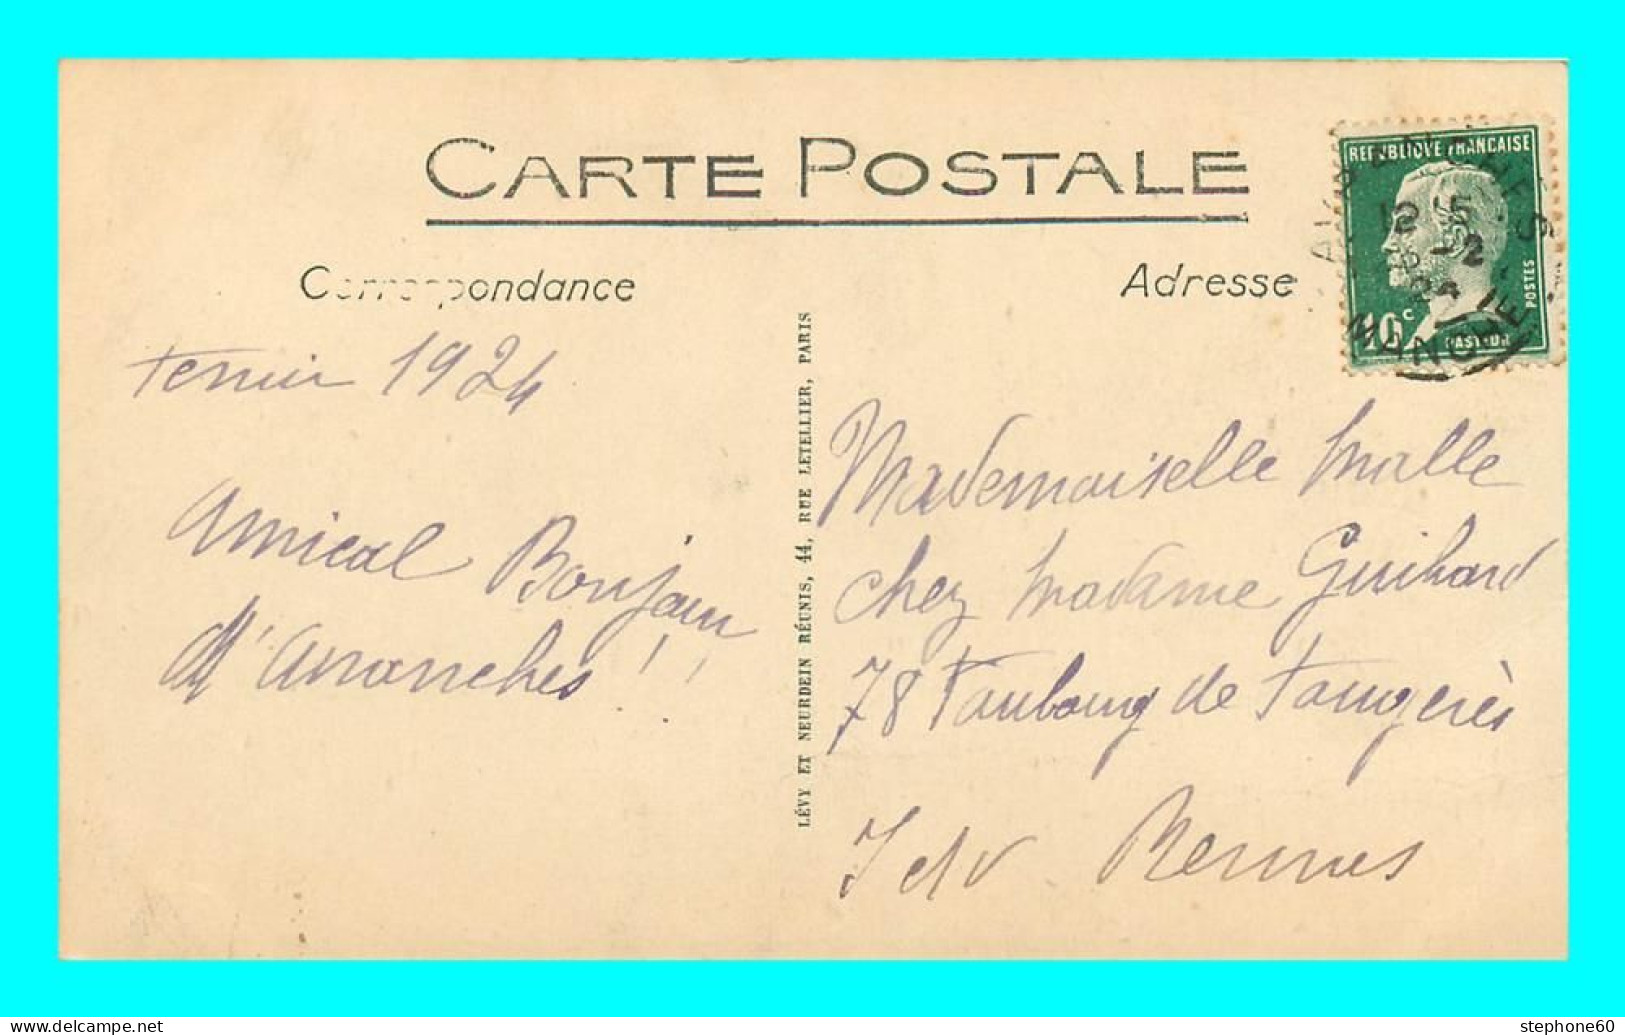 CARTE POSTALE
Correspondance
Adresse
REPUBLIQUE FRANÇAISE
12 15
-2
MANCHE
10c
PASTEUR
POSTES
Fevrier 1924
Amical Bonjour
d'Avranches !!
LÉVY ET NEURDEIN RÉUNIS, 44, RUE LETELLIER, PARIS
Mademoiselle Malle
chez Madame Guihard
78 Faubourg de Fougères
I et V Rennes
stephone60